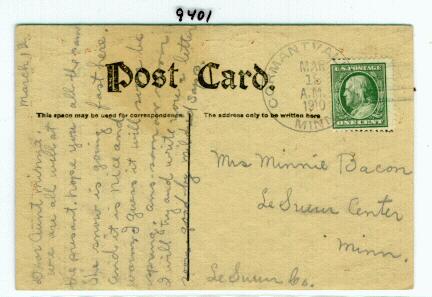 9401
Post Card.
This space may be used for correspondence.
The address only to be written here
MAR
12
A.M.
1910
MINN
U.S. POSTAGE
ONE CENT
March 12
Dear Aunt Minnie.
we are all well at
the present. hope you all the same
The snow is going fast here.
and it is nice and
warm. I guess it will soon be
spring. ans. soon
I will try and write you a letter
good by
Mrs Minnie Bacon
Le Sueur Center
Minn.
Le Sueur Co.